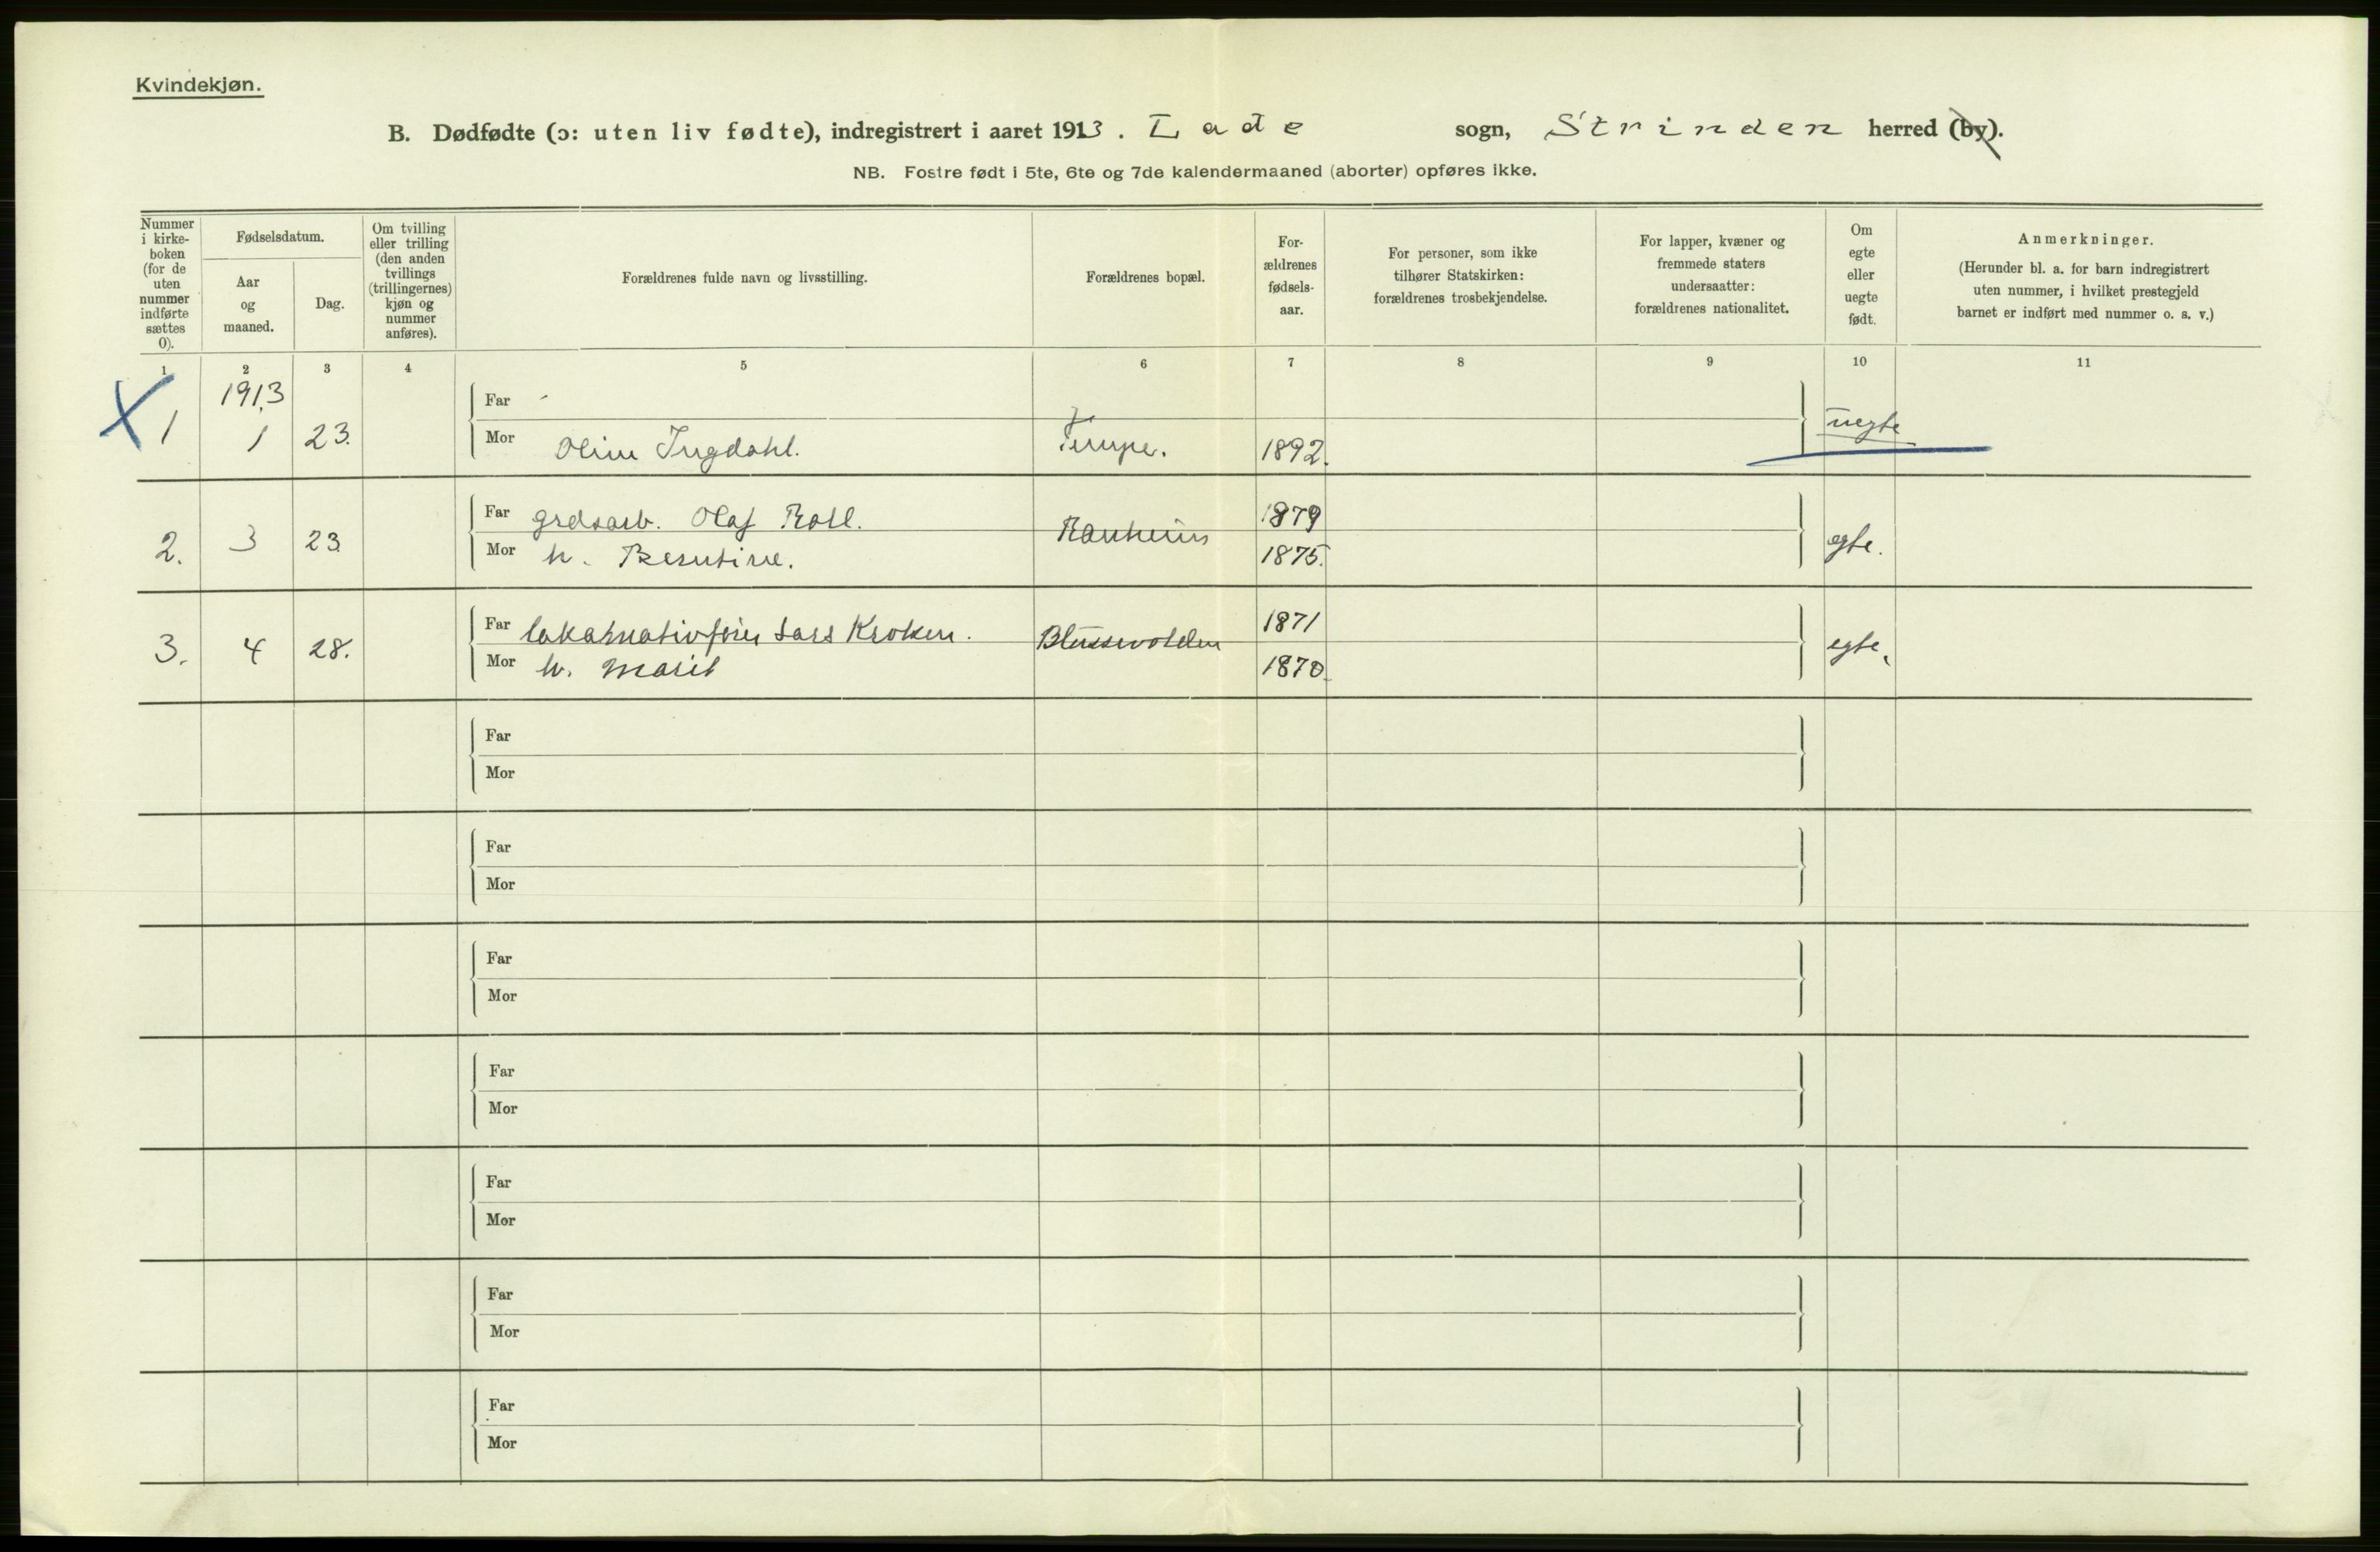 Kvindekjøn.
B. Dødfødte (ɔ: uten liv fødte), indregistrert i aaret 1913. Lade sogn, Strinden herred (by).
NB. Fostre født i 5te, 6te og 7de kalendermaaned (aborter) opføres ikke.
Nummer i kirke-boken (for de uten nummer indførte sættes 0).
Fødselsdatum.
Aar og maaned.
Dag.
Om tvilling eller trilling (den anden tvillings (trillingernes) kjøn og nummer anføres).
Forældrenes fulde navn og livsstilling.
Forældrenes bopæl.
For-ældrenes fødsels-aar.
For personer, som ikke tilhører Statskirken: forældrenes trosbekjendelse.
For lapper, kvæner og fremmede staters undersaatter: forældrenes nationalitet.
Om egte eller uegte født.
Anmerkninger.
(Herunder bl. a. for barn indregistrert uten nummer, i hvilket prestegjeld barnet er indført med nummer o. s. v.)
1 2 3 4 5 6 7 8 9 10 11
1913
Far -
1 1 23. Mor Oline Ingdahl. Tempe. 1892. uegte
Far grdsarb. Olaf Roll. 1879
2. 3 23 Ranheim egte.
Mor h. 1875.
Far Lars Kroken. 1871
3. 4 28. Blussevolden egte.
Mor h. Marit 1870.
Far
Mor
Far
Mor
Far
Mor
Far
Mor
Far
Mor
Far
Mor
Far
Mor